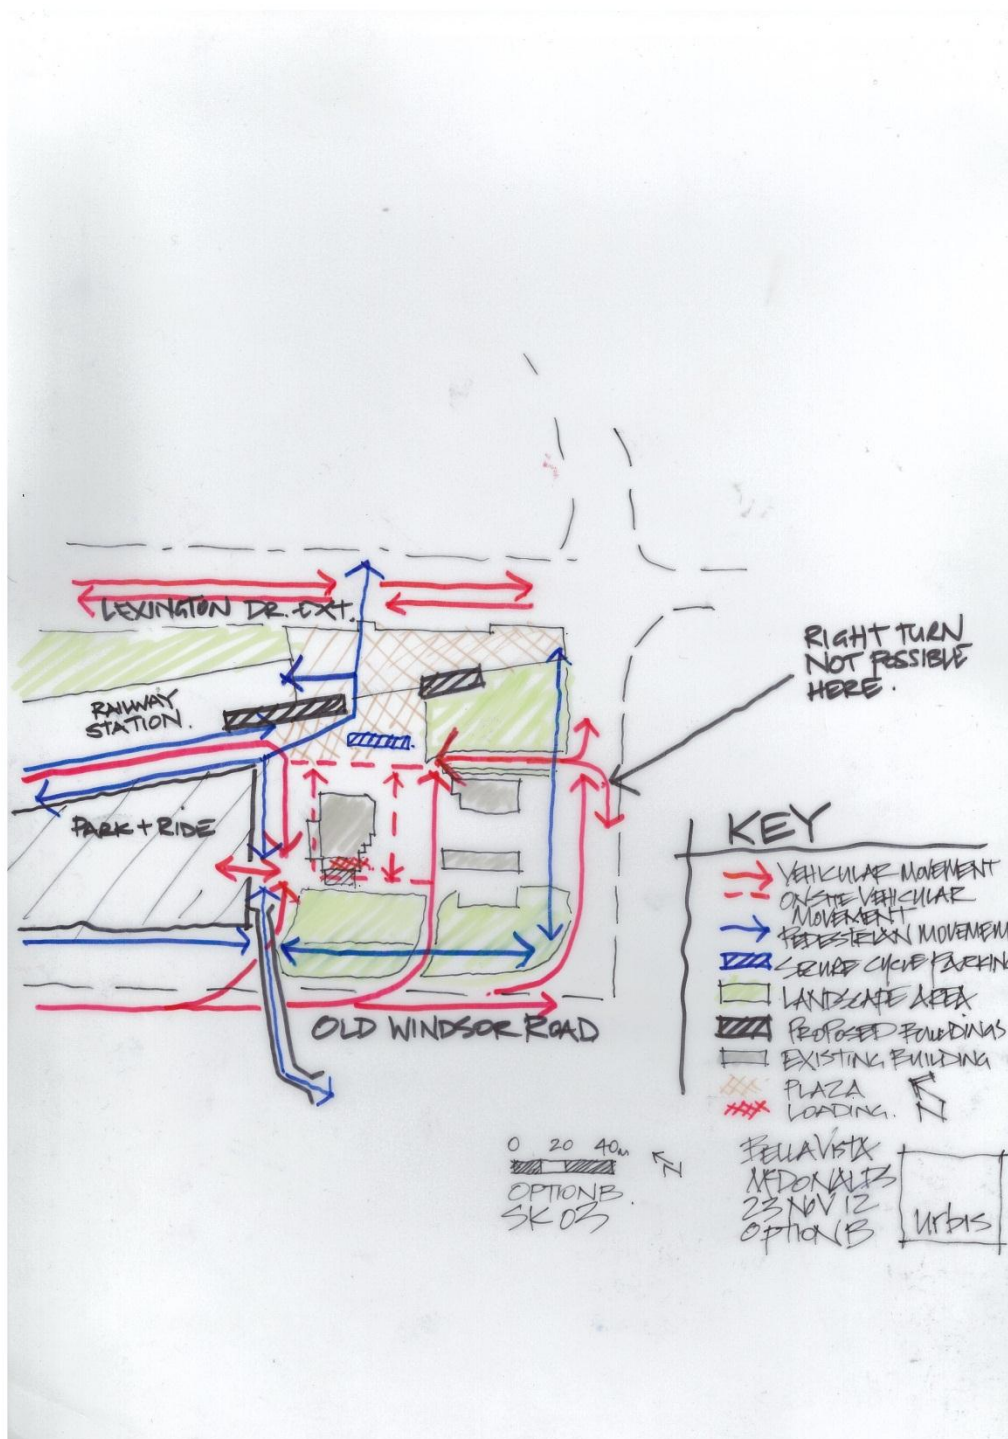 LEXINGTON DR. EXT.
RIGHT TURN
NOT POSSIBLE
HERE.
RAILWAY
STATION.
PARK + RIDE
OLD WINDSOR ROAD
KEY
VEHICULAR MOVEMENT
ONSITE VEHICULAR
MOVEMENT
PEDESTRIAN MOVEMEN
SECURE CYCLE PARKING
LANDSCAPE AREA
PROPOSED BUILDINGS
EXISTING BUILDING
PLAZA
LOADING.
N
0 20 40m
N
OPTION B.
SK 03
BELLA VISTA
MCDONALDS
23 NOV 12
OPTION B
urbis